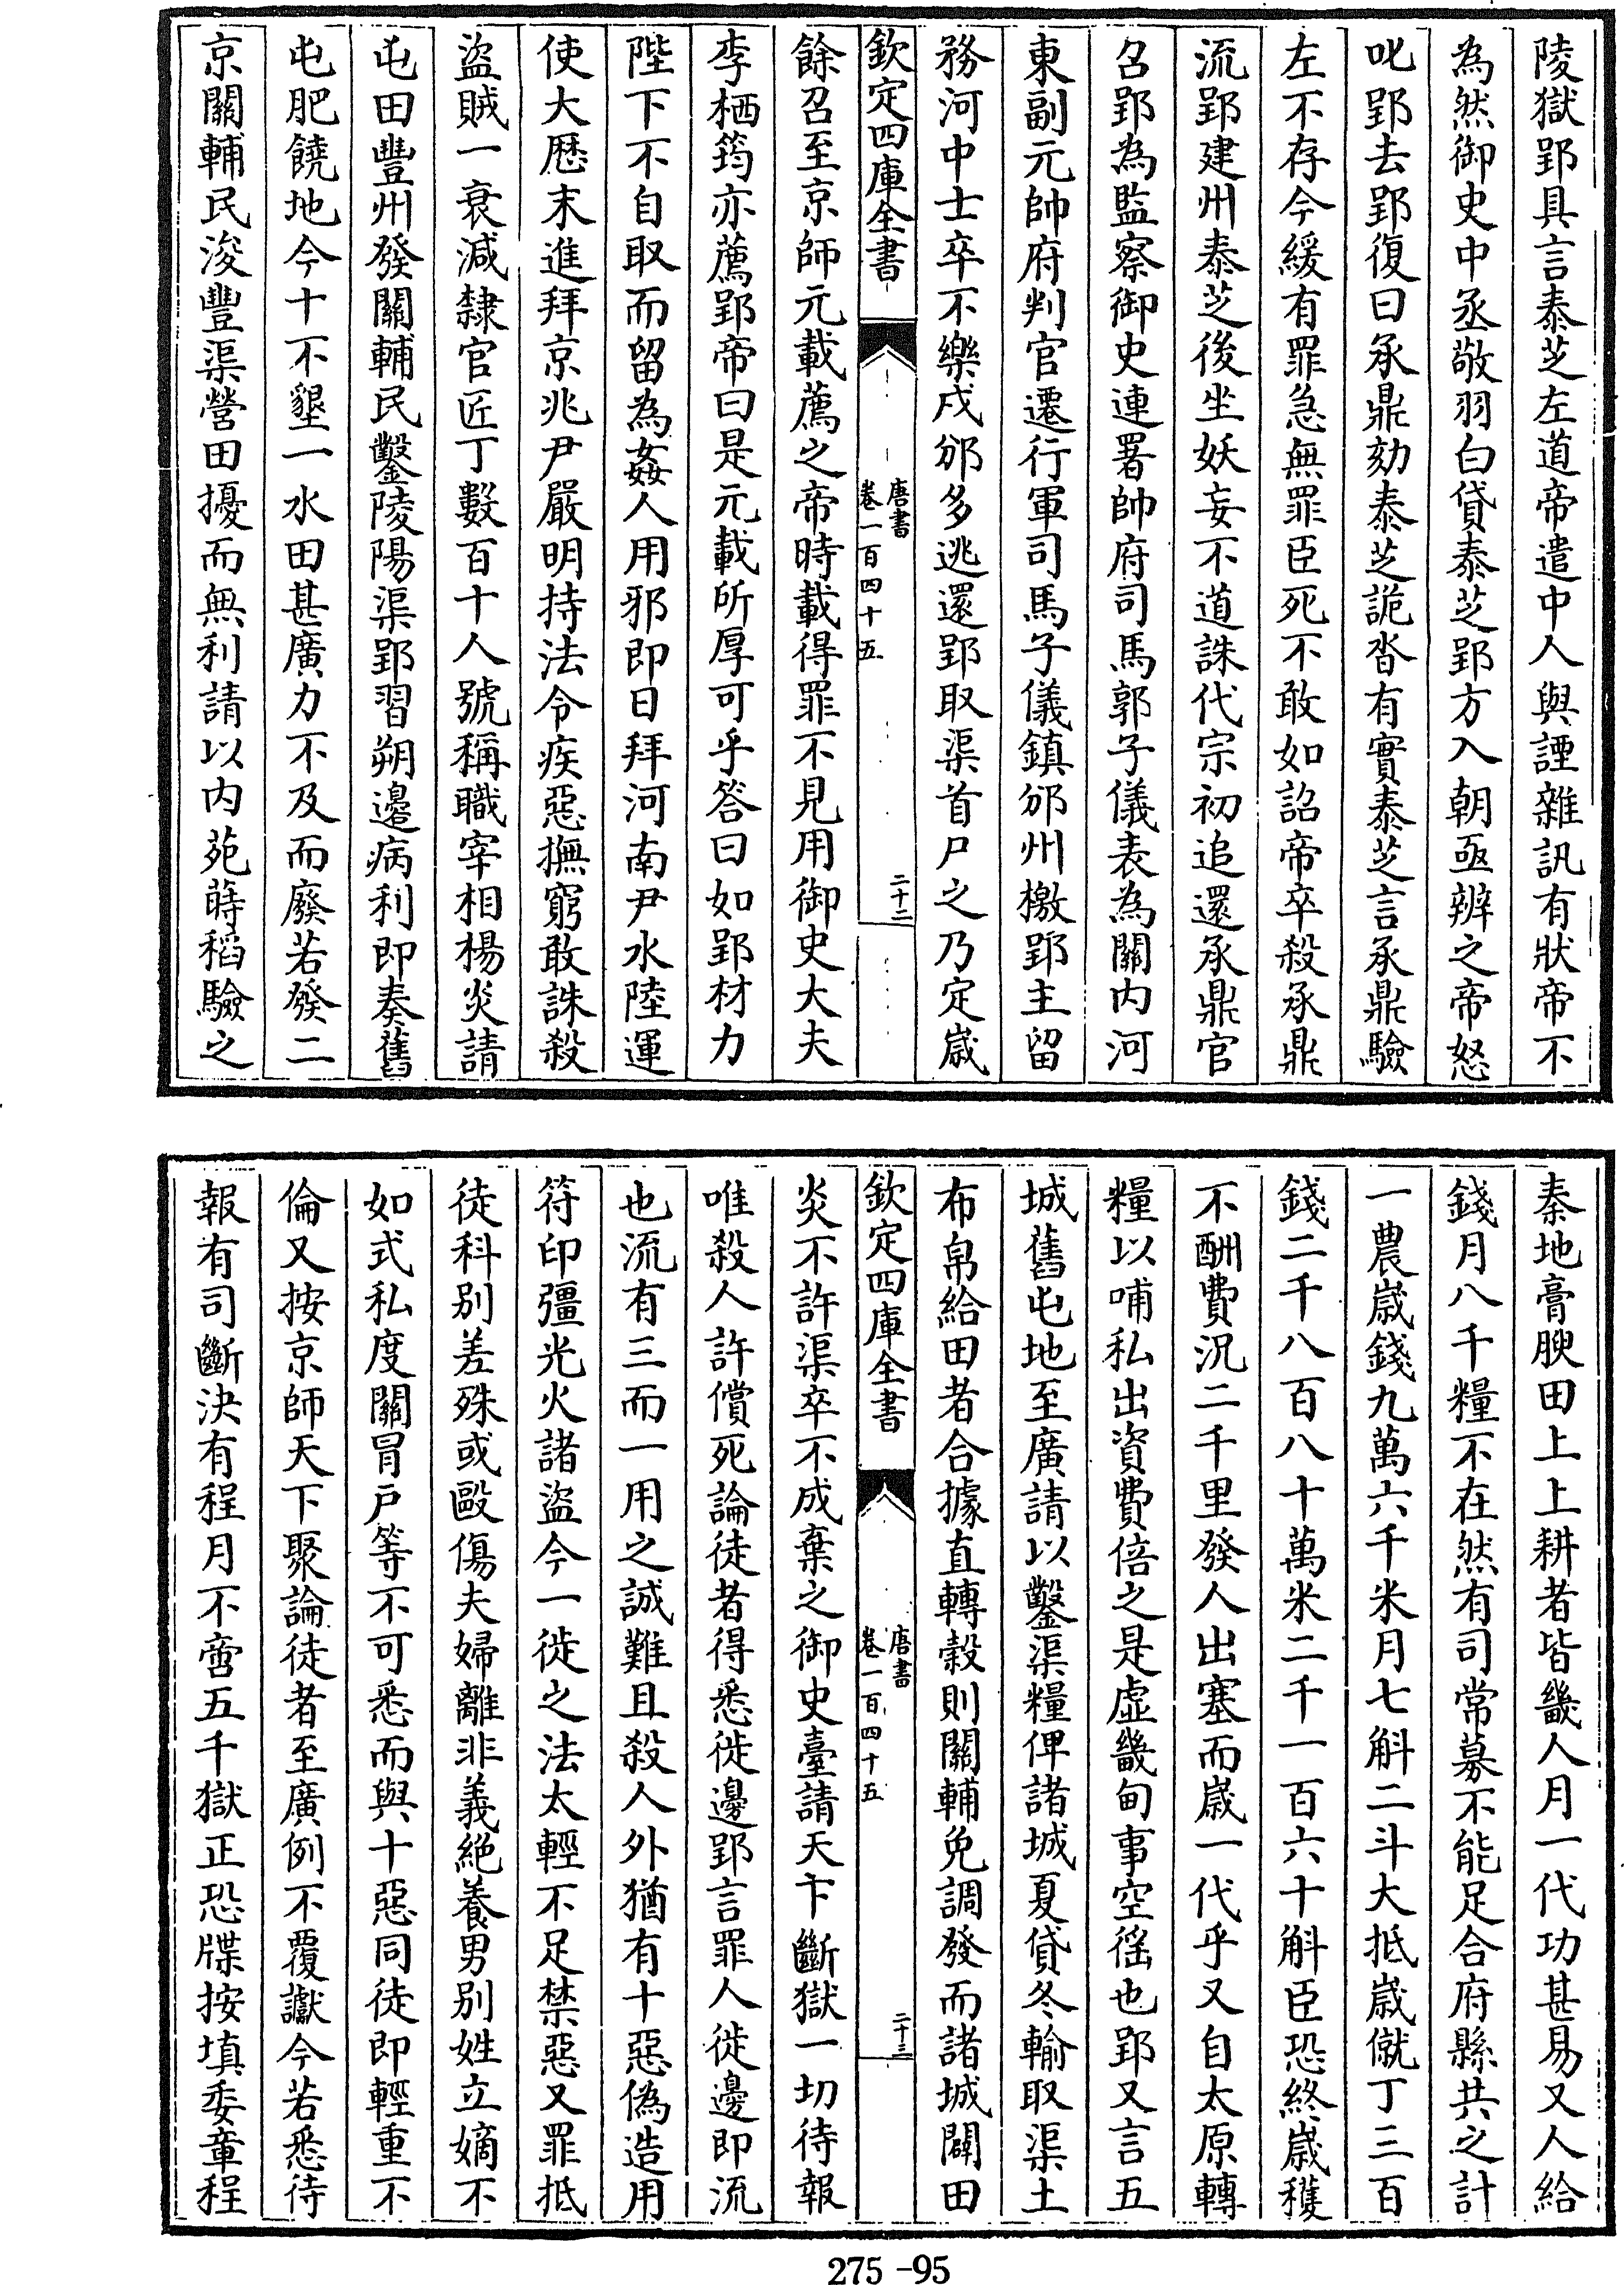 陵獄郢具言泰芝左道帝遣中人與諲雜訊有狀帝不
為然御史中丞敬羽白貸泰芝郢方入朝亟辨之帝怒
叱郢去郢復曰承鼎劾泰芝詭沓有實泰芝言承鼎驗
左不存今緩有罪急無罪臣死不敢如詔帝卒殺承鼎
流郢建州泰芝後坐妖妄不道誅代宗初追還承鼎官
召郢為監察御史連署帥府司馬郭子儀表為關内河
東副元帥府判官遷行軍司馬子儀鎮邠州檄郢主留
務河中士卒不樂戍邠多逃還郢取渠首尸之乃定嵗
欽定四庫全書
唐書
卷一百四十五
二十二
餘召至京師元載薦之帝時載得罪不見用御史大夫
李栖筠亦薦郢帝曰是元載所厚可乎答曰如郢材力
陛下不自取而留為姦人用邪即日拜河南尹水陸運
使大厯末進拜京兆尹嚴明持法令疾惡撫窮敢誅殺
盜賊一衰減隸官匠丁數百十人號稱職宰相楊炎請
屯田豐州發關輔民鑿陵陽渠郢習朔邊病利即奏舊
屯肥饒地今十不墾一水田甚廣力不及而廢若發二
京關輔民浚豐渠營田擾而無利請以内苑蒔稻驗之
秦地膏腴田上上耕者皆畿人月一代功甚易又人給
錢月八千糧不在然有司常募不能足合府縣共之計
一農嵗錢九萬六千米月七斛二斗大抵嵗僦丁三百
錢二千八百八十萬米二千一百六十斛臣恐終嵗穫
不酬費況二千里發人出塞而嵗一代乎又自太原轉
糧以哺私出資費倍之是虚畿甸事空徭也郢又言五
城舊屯地至廣請以鑿渠糧俾諸城夏貸冬輸取渠土
布帛給田者合據直轉穀則關輔免調發而諸城闢田
欽定四庫全書
唐書
卷一百四十五
二十三
炎不許渠卒不成棄之御史臺請天下斷獄一切待報
唯殺人許償死論徒者得悉徙邊郢言罪人徙邊即流
也流有三而一用之誠難且殺人外猶有十惡偽造用
符印彊光火諸盜今一徙之法太輕不足禁惡又罪抵
徒科别差殊或毆傷夫婦離非義絶養男别姓立嫡不
如式私度關冒戸等不可悉而與十惡同徒即輕重不
倫又按京師天下聚論徒者至廣例不覆讞今若悉待
報有司斷決有程月不啻五千獄正恐牒按填委章程
275 -95